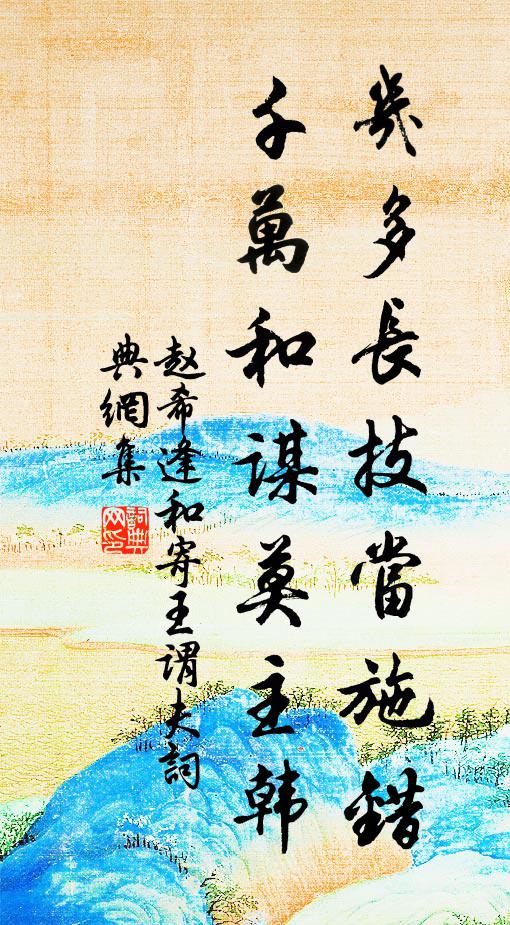 幾多長技當施錯
千萬和謀莫主韩
赵希逢和寄王谓夫詞
典網集
詞典
网印